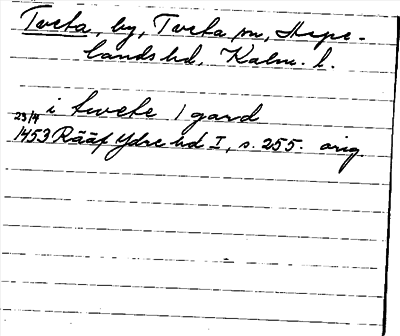 Tveta, by, Tveta sn, Aspe-
lands hd, Kalm. l.
i twete 1 gard
23/4
1453 Rääf Ydre hd I, s. 255. orig